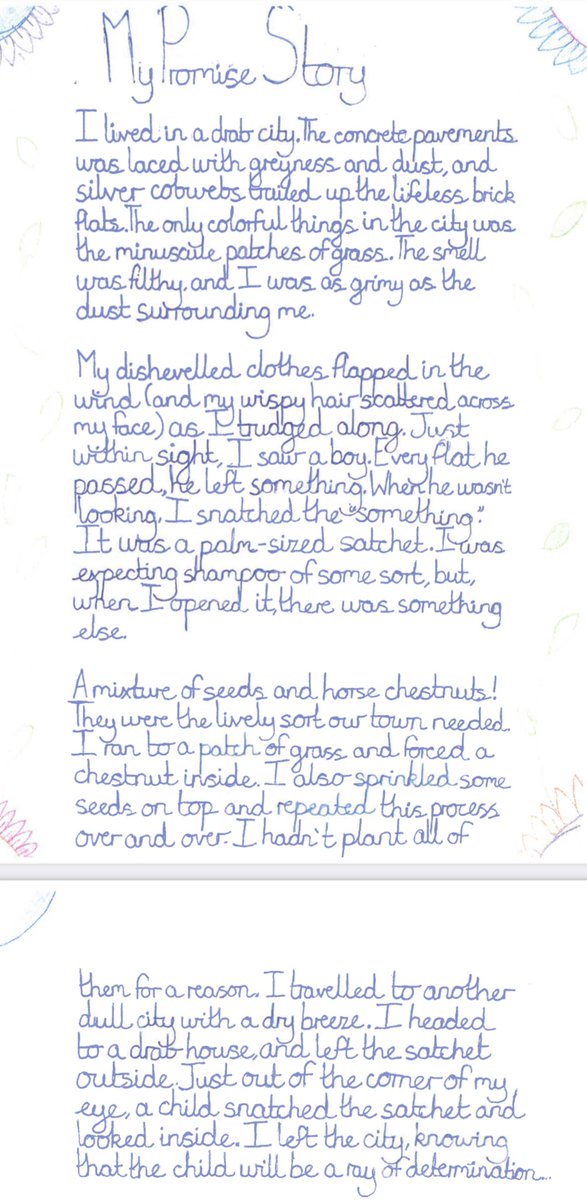 My Promise Story
I lived in a drab city. The concrete pavements
was laced with greyness and dust, and
silver cobwebs trailed up the lifeless brick
flats. The only colorful things in the city was
the minuscule patches of grass. The smell
was filthy, and I was as grimy as the
dust surrounding me.
My dishevelled clothes flapped in the
wind (and my wispy hair scattered across
my face) as I trudged along. Just
within sight, I saw a boy. Every flat he
passed, he left something. When he wasn't
looking, I snatched the "something."
It was a palm-sized satchet. I was
expecting shampoo of some sort, but,
when I opened it, there was something
else.
A mixture of seeds and horse chestnuts!
They were the lively sort our town needed.
I ran to a patch of grass and forced a
chestnut inside. I also sprinkled some
seeds on top and repeated this process
over and over. I hadn't plant all of
them for a reason. I travelled to another
dull city with a dry breeze. I headed
to a drab house, and left the satchet
outside. Just out of the corner of my
eye, a child snatched the satchet and
looked inside. I left the city, knowing
that the child will be a ray of determination...